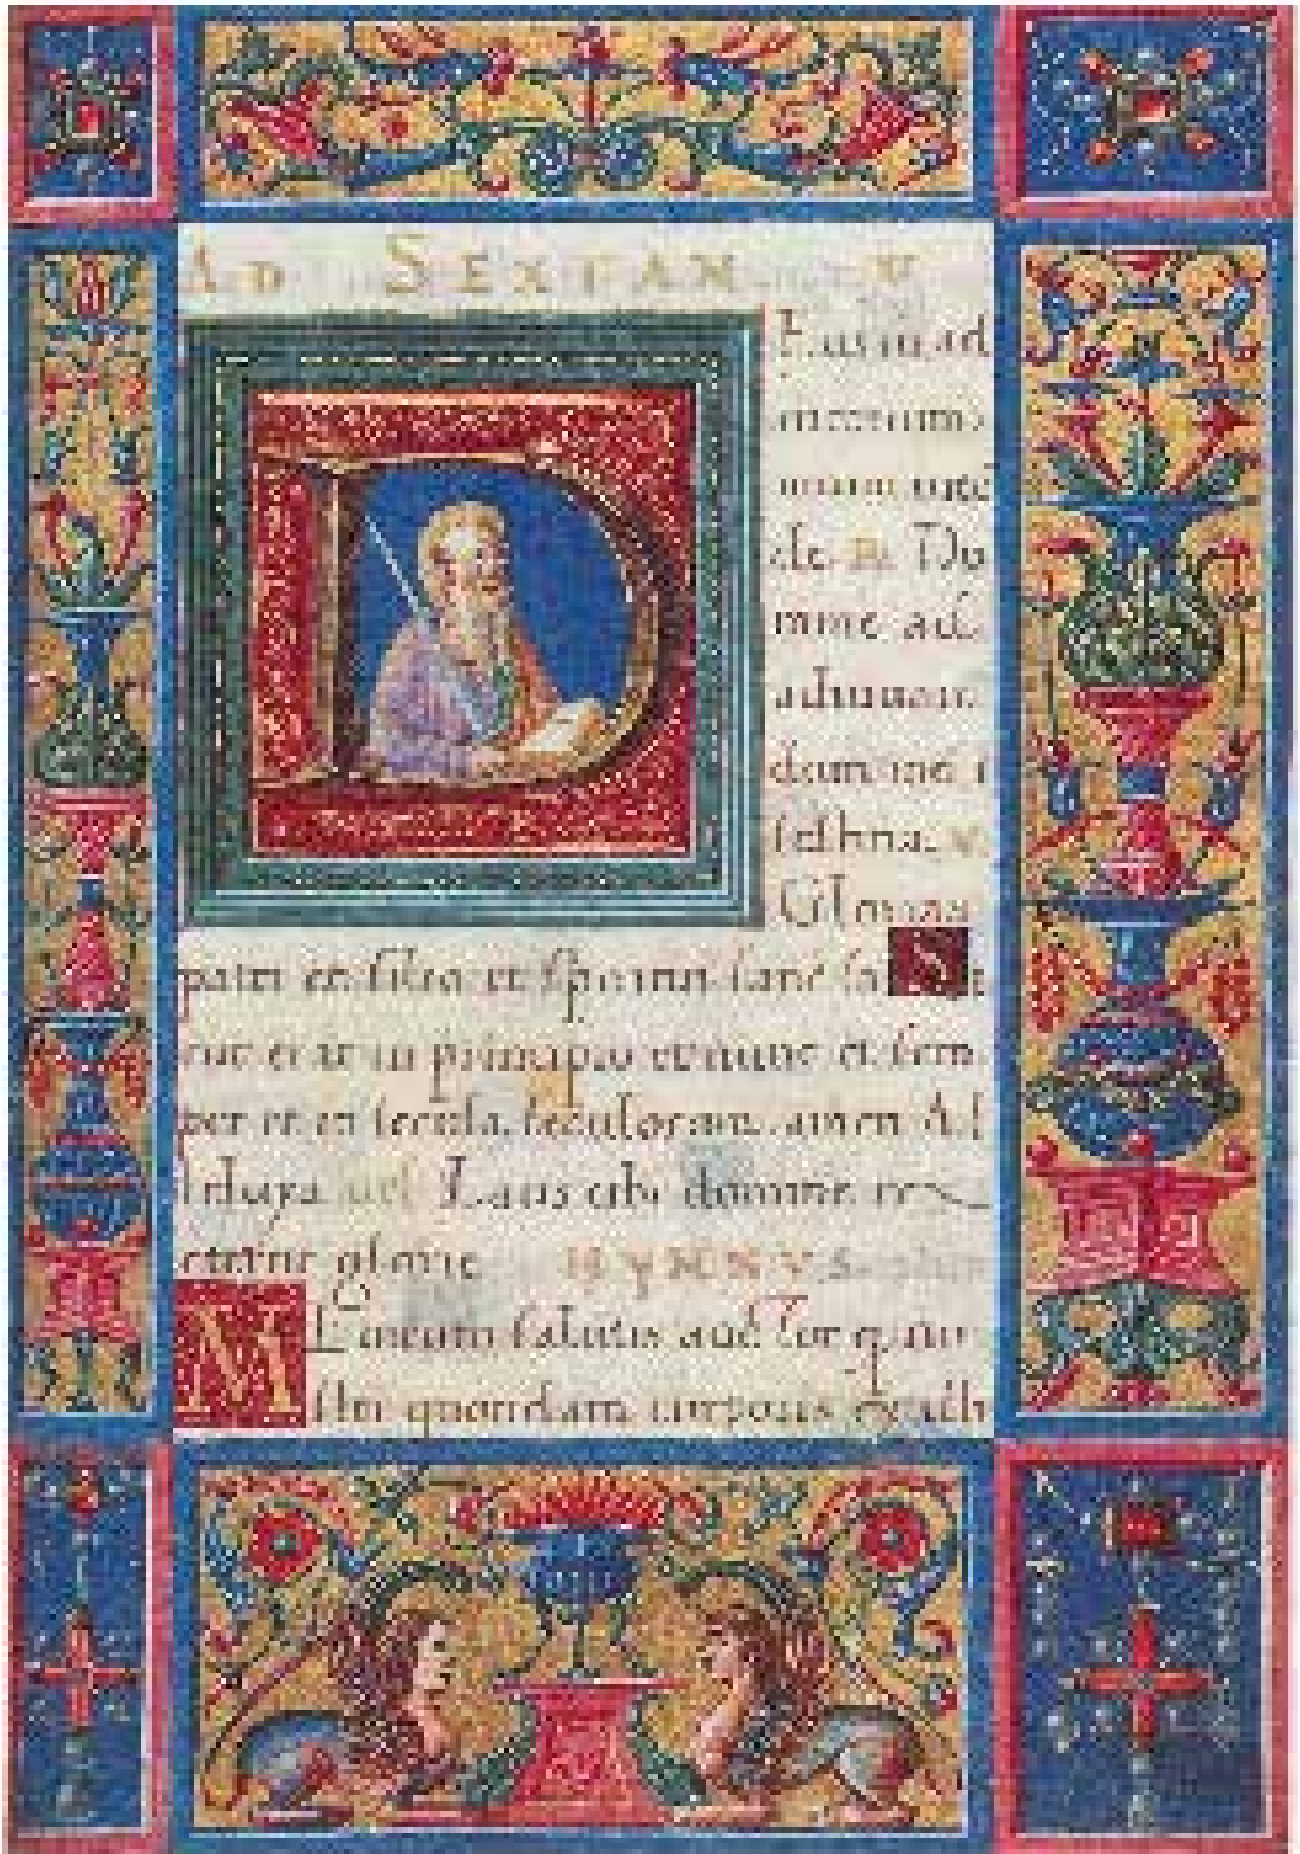 AD SEXTAM. V
D Eus in ad
iutorium
meum inte
de. R. Do
mine ad
adiuuan
dum me
festina. V.
Gloria
patri et filio et
Sicut erat in principio et nunc et sem
per et in secula seculorum. amen Al
leluya uel Laus tibi domine rex
eterne glorie HYMNVS
M Emento salutis auctor quod no
stri quondam corporis ex